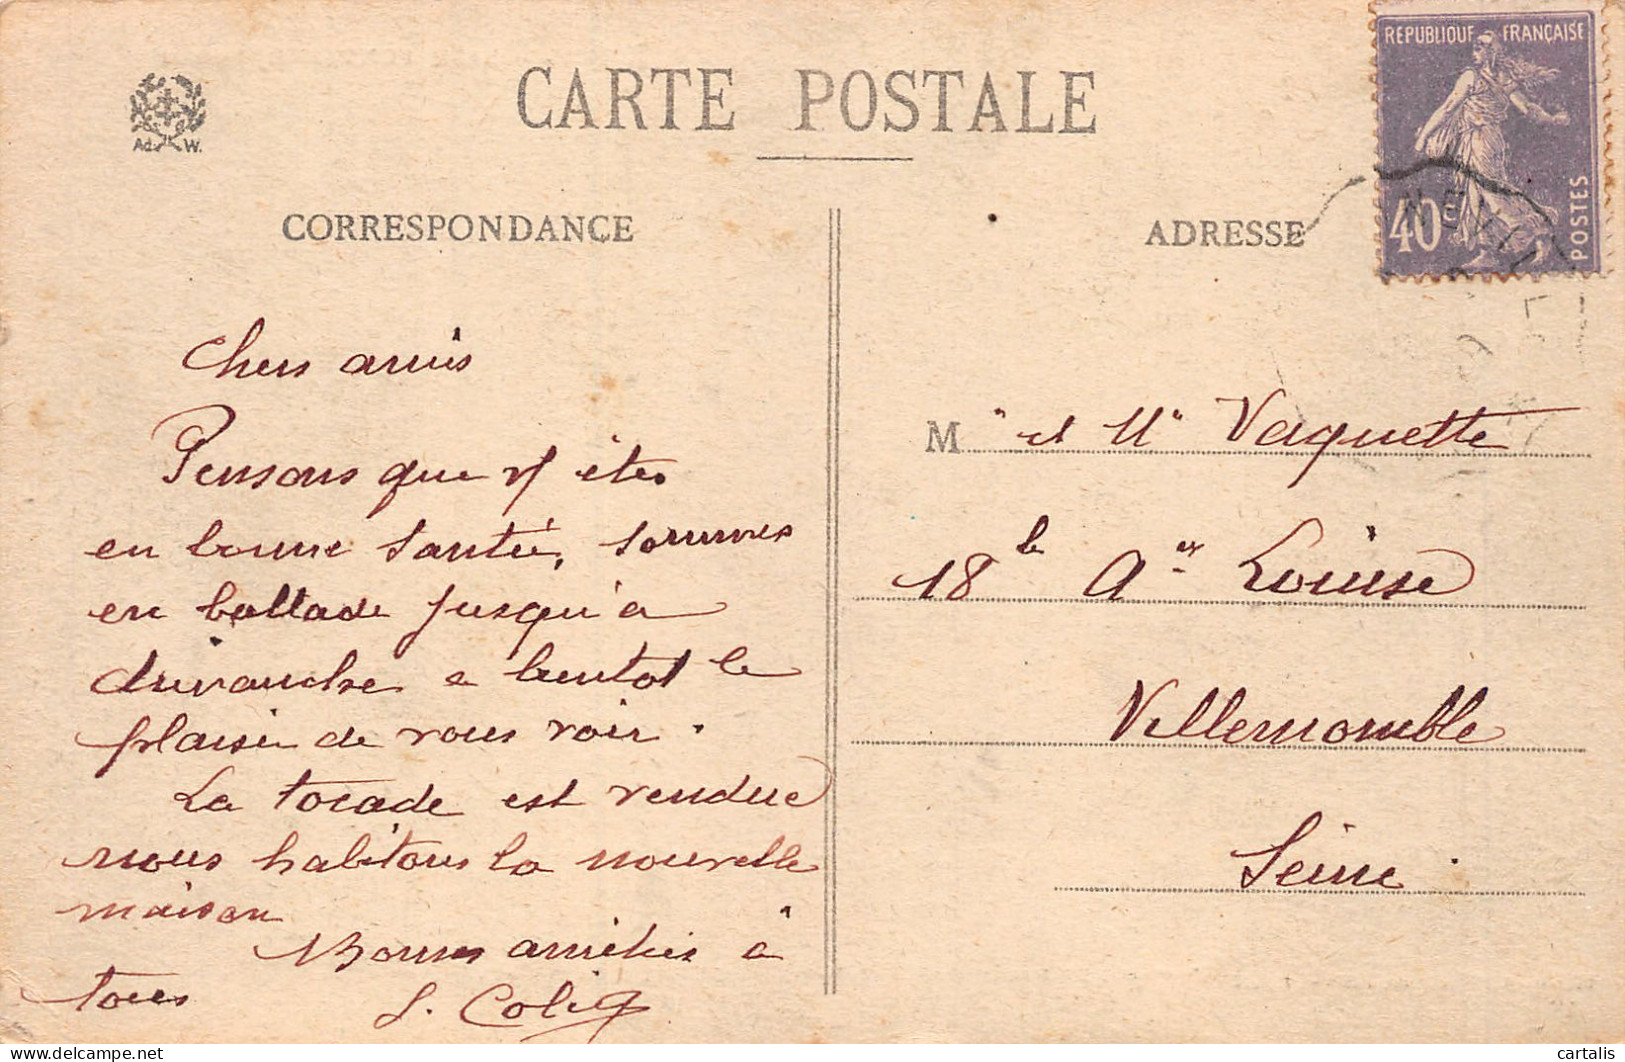 CARTE POSTALE
Ad. W.
CORRESPONDANCE
ADRESSE
REPUBLIQUE FRANÇAISE
40
POSTES
Chers amis
Pensons que v/ êtes
en bonne santé, sommes
en ballade jusqu'à
dimanche a bientot le
plaisir de vous voir.
La tocade est vendue
nous habitons la nouvelle
maison
Bonnes amitiés à
tous
M et Mᵉ Vaquette
18 b Aᵘᵉ Louise
Villemomble
Seine
delcampe.net
cartalis